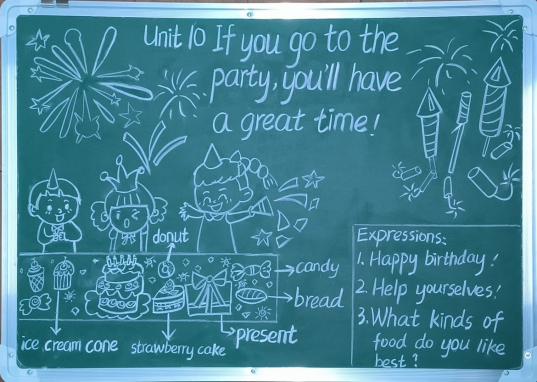 Unit 10 If you go to the
party, you'll have
a great time!
donut
candy
bread
present
ice cream cone
strawberry cake
Expressions:
1. Happy birthday!
2. Help yourselves!
3. What kinds of
food do you like
best?